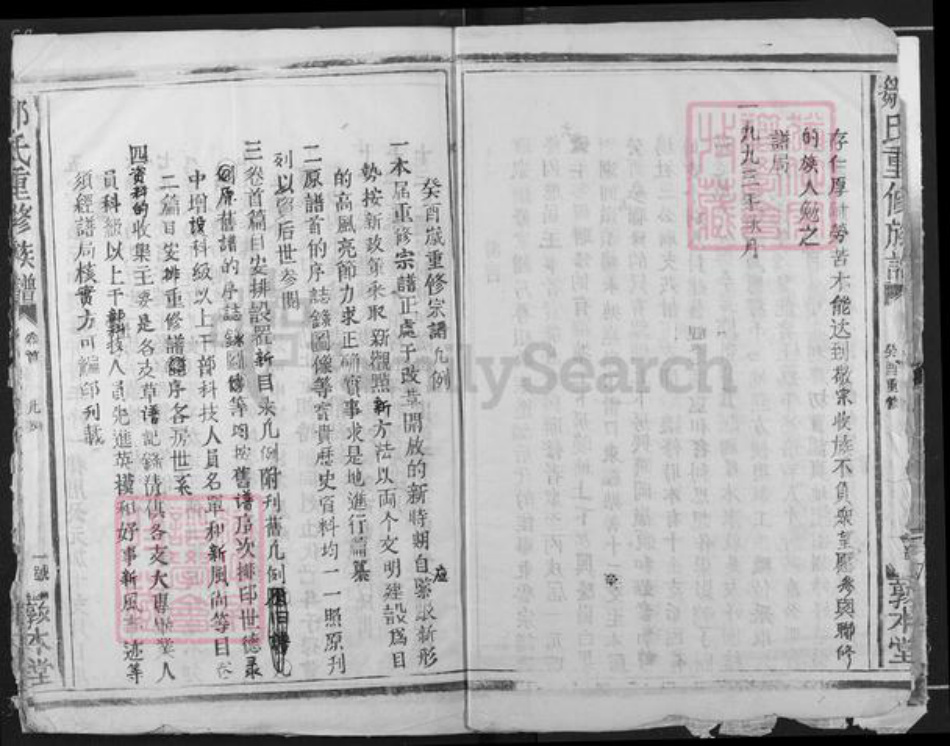 鄒氏重修族譜
癸酉重修
敦本堂
存仁厚 勞苦 能达到敬宗收族不負衆望愿參與聯修
的族人勉之
譜局
一九九三年 月
癸酉歲重修宗譜凡例
一本届重修宗譜正處于改革開放的新時期自應緊跟新形
勢按新政策采取新觀點新方法以両个文明建設爲目
的高風亮節力求正确實事求是地進行篇纂
二原譜首的序誌錄圖像等寶貴歷史資料均一一照原刊
列以留后世參閱
三卷首篇目安排設置新目录凡例附刊舊凡例
原舊譜的序誌 等均按舊譜序次排印世德录
中增設科級以上干部科技人員名單和新風尚等目
二篇目安排重修譜 序各房世系
四資料的收集主要是各支草譜記錄清供各支大專畢業人
員科級以上干部科技人員先進英模和好事新風 迹等
須經譜局核實方可編印列載
氏重修族譜
卷首
凡例
一號
敦本堂
FamilySearch